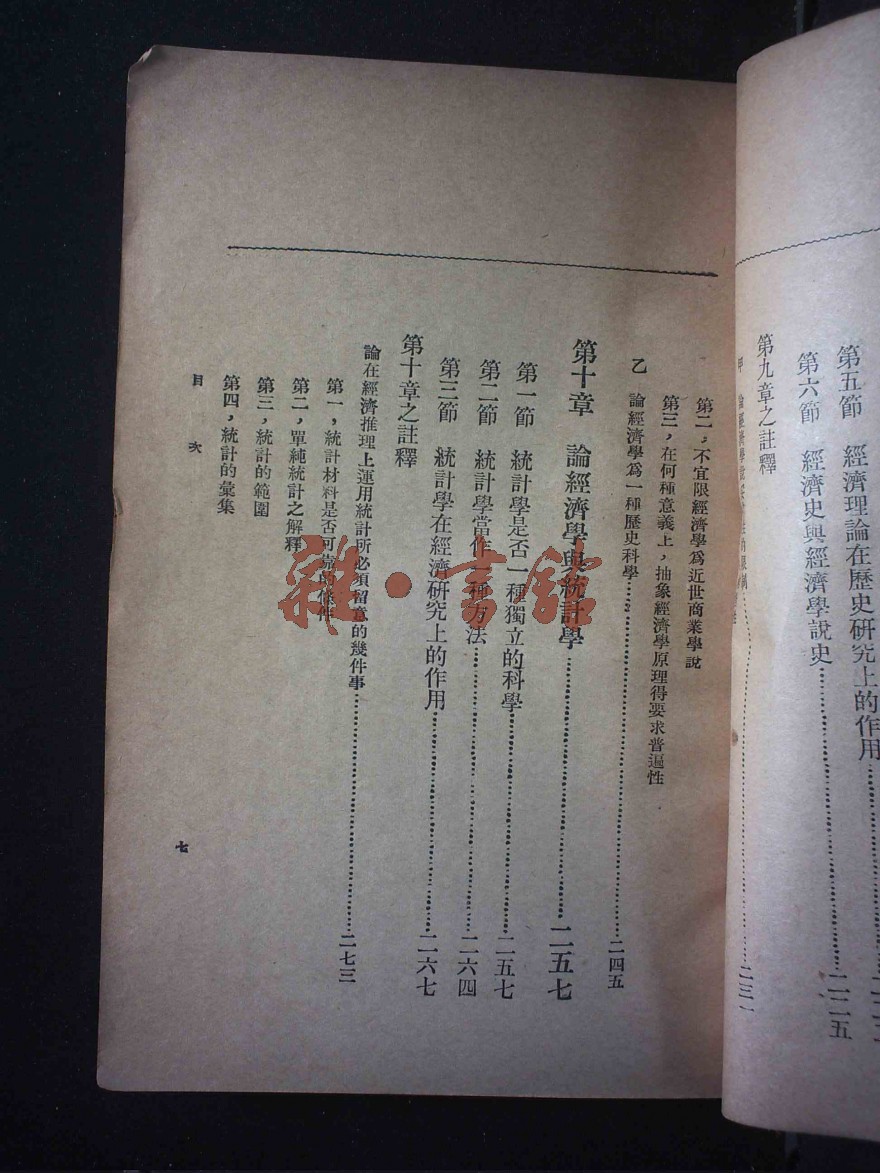 第五節　經濟理論在歷史研究上的作用
第六節　經濟史與經濟學說史……二二五
第九章之註釋
第二，不宜限經濟學爲近世商業學說
第三，在何種意義上，抽象經濟學原理得要求普遍性
乙　論經濟學爲一種歷史科學……二四五
第十章　論經濟學與統計學……二五七
第一節　統計學是否一種獨立的科學……二五七
第二節　統計學當作一種方法……二六四
第三節　統計學在經濟研究上的作用……二六七
第十章之註釋
論在經濟推理上運用統計所必須留意的幾件事……二七三
第一，統計材料是否可靠的條件
第二，單純統計之解釋
第三，統計的範圍
第四，統計的彙集
目次
七
雜·書館